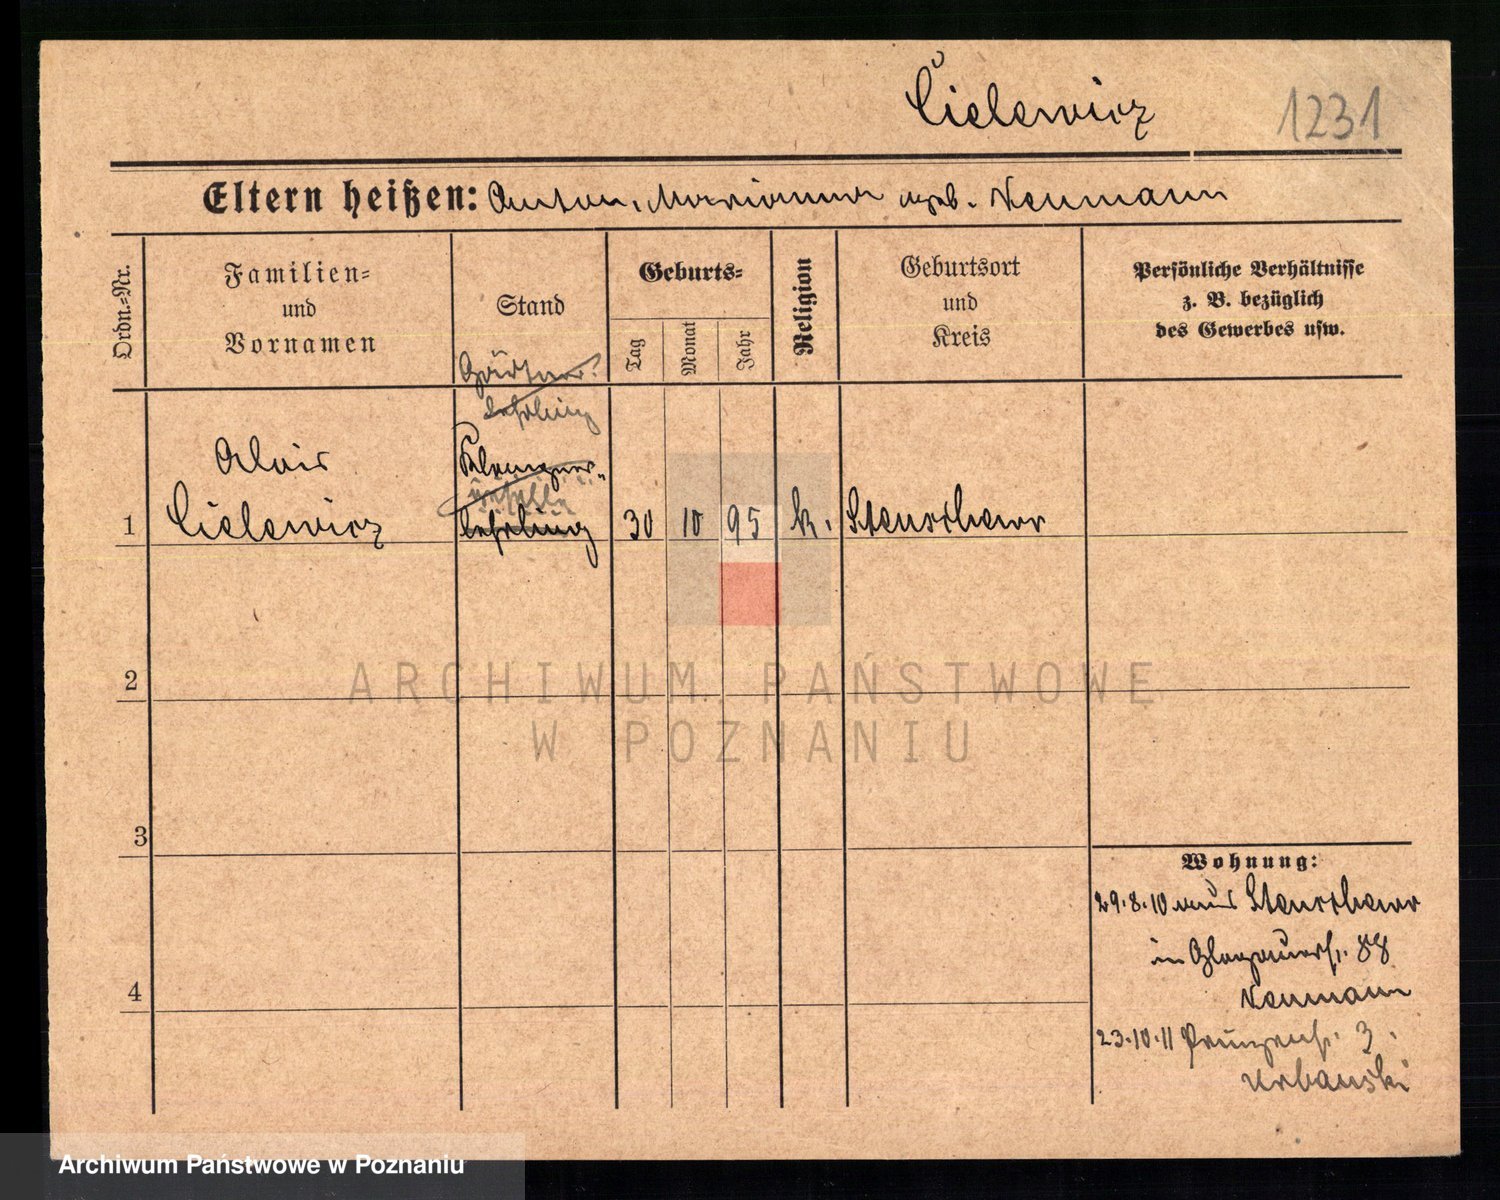 Cielewicz 1231
Eltern heißen: Anton, Marianna geb. Neumann
Ordn.-Nr.
Familien-
und
Vornamen
Stand
Geburts-
Tag
Monat
Jahr
Religion
Geburtsort
und
Kreis
Persönliche Verhältnisse
z. B. bezüglich
des Gewerbes usw.
Gärtner
Lehrling
Alois
Klempner-
1 Cielewicz Lehrling 30 10 95 k. Stenschewo
2
3
4
Wohnung:
29.8.10 aus Stenschewo
in Glogauerstr. 88
Neumann
23.10.11 Prinzenstr. 3.
Urbanski
ARCHIWUM PAŃSTWOWE
W POZNANIU
Archiwum Państwowe w Poznaniu